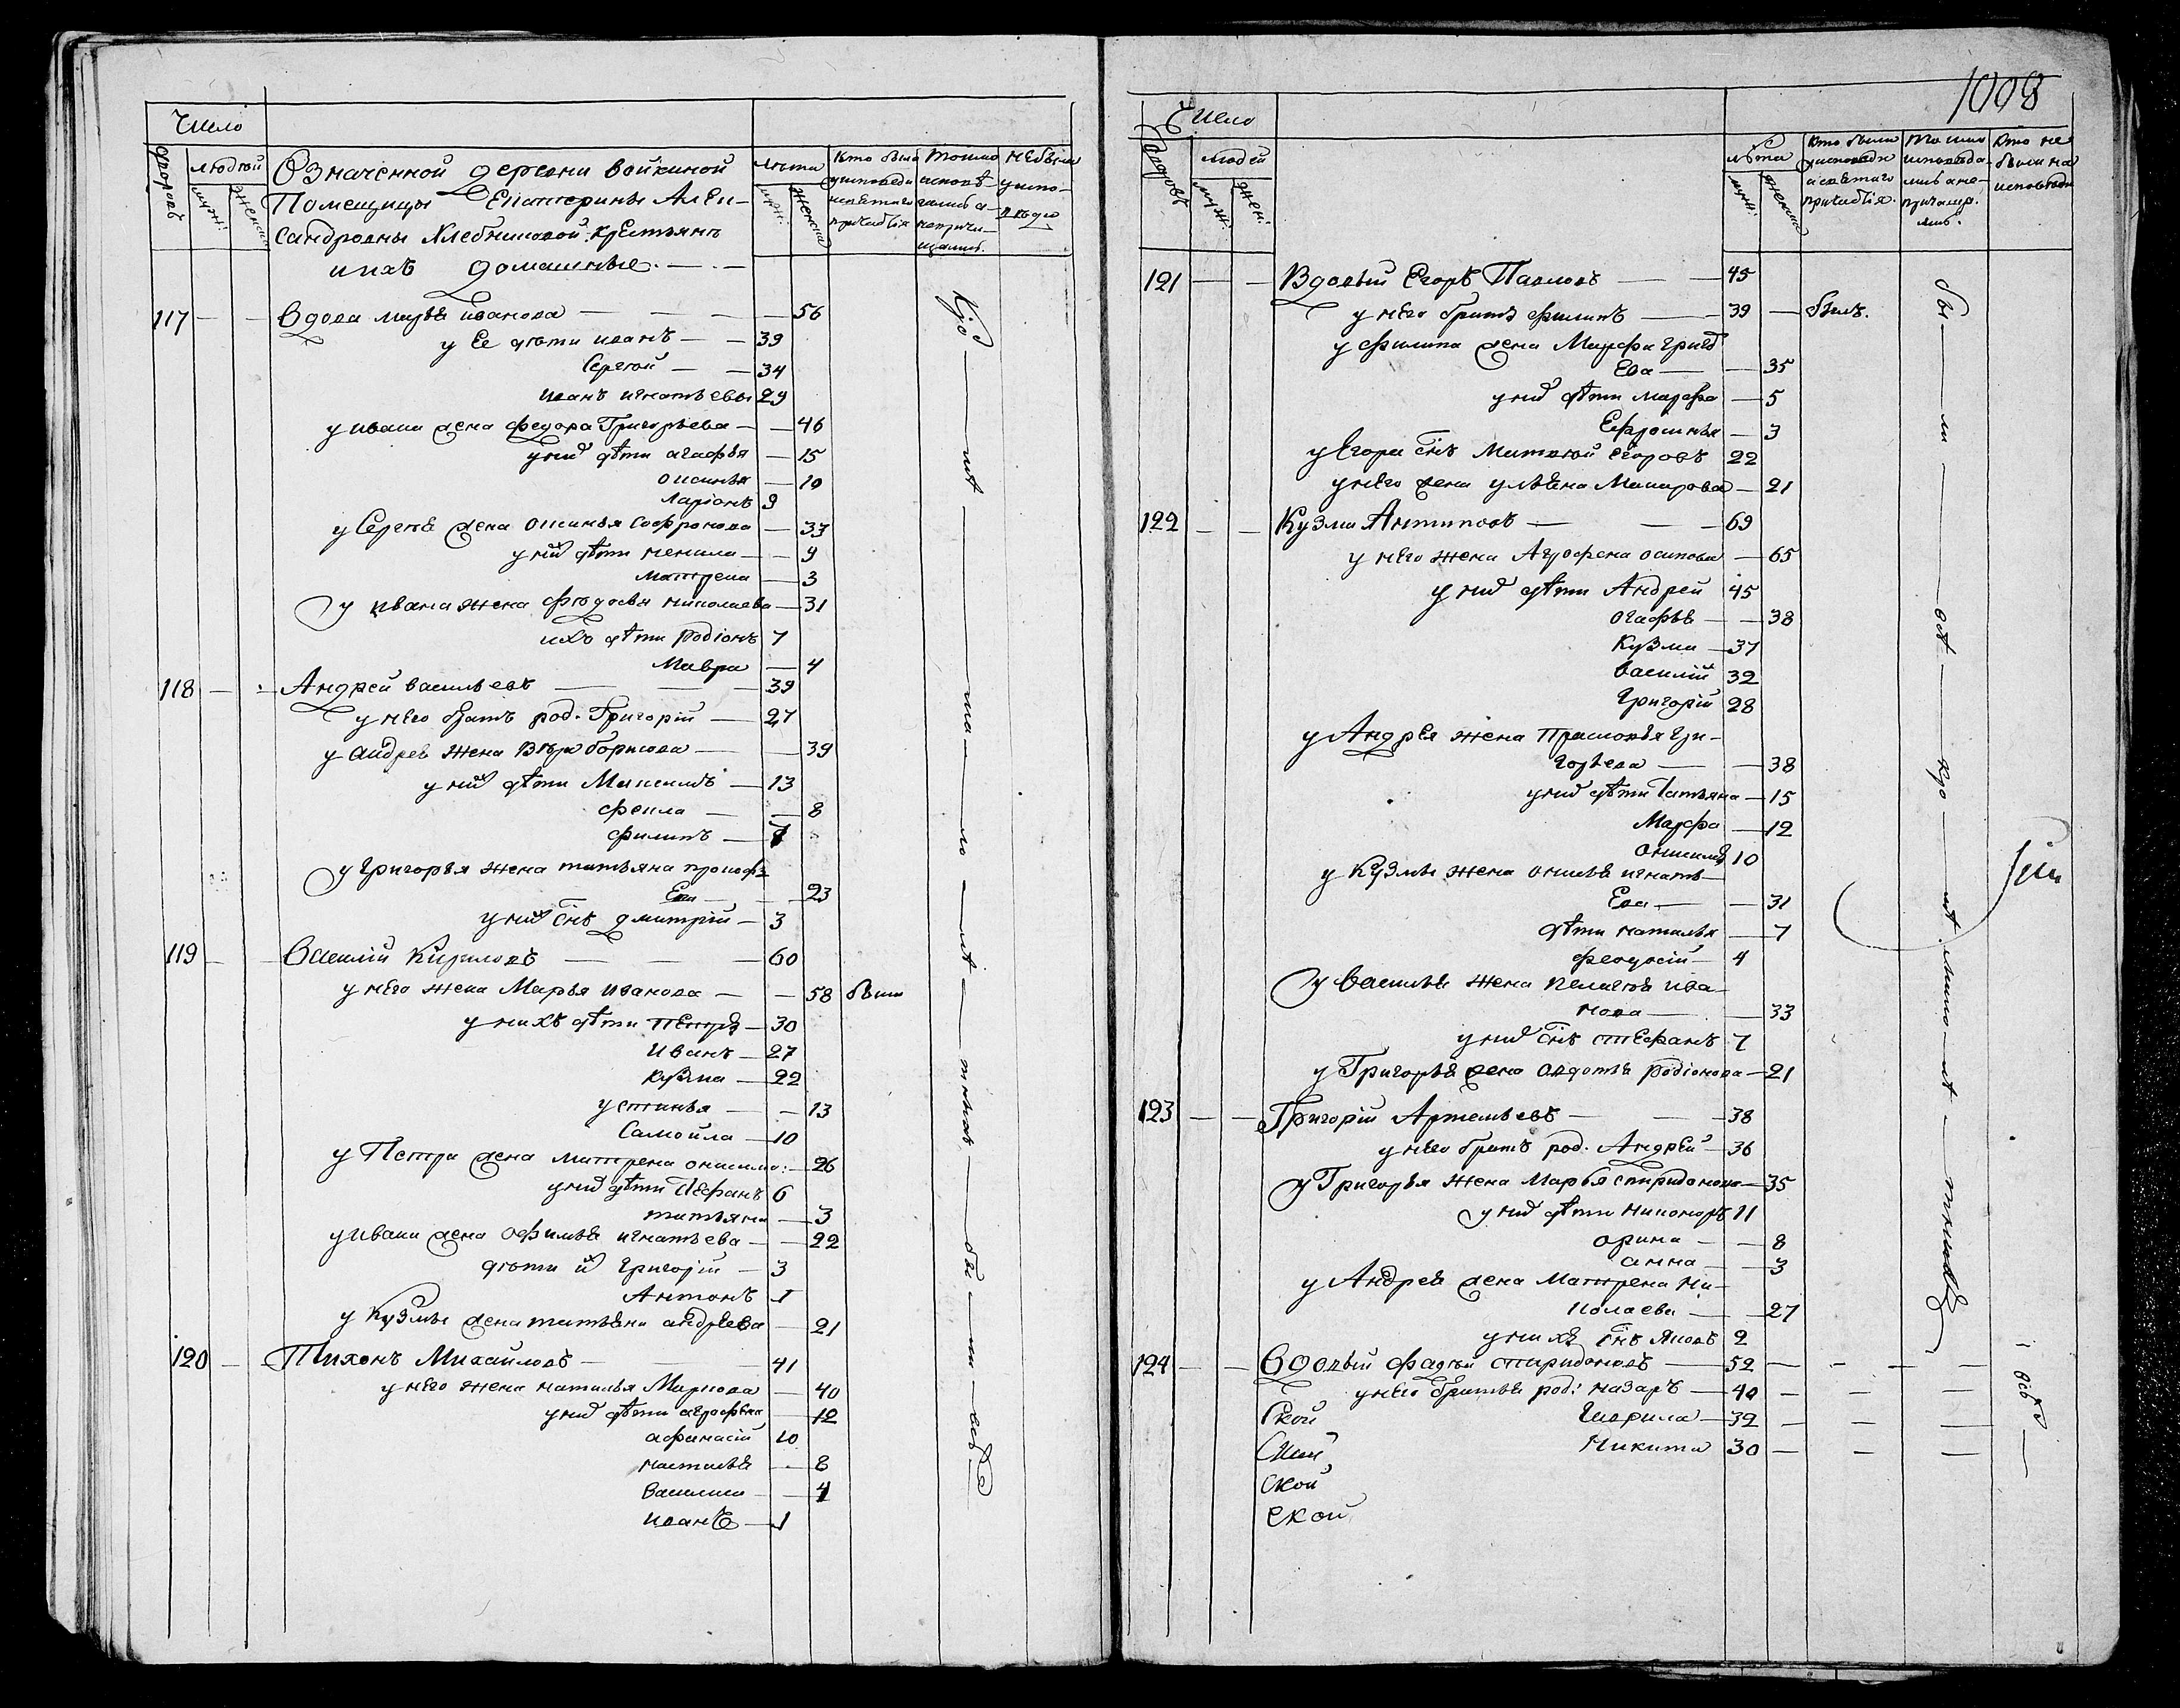 Число
дворовъ
людѣй
муж:
женска
Означенной дерѣвни войкиной
Помещицы Екатерины Алек-
сандровны Хлебниковой: крестьянъ
ихъ домашные.
лѣта
муж:
женска
кто были
у исповеди
и святаго
причастія
токмо
исповѣ-
дались а
не прича-
щались.
не были
у испо-
вѣди
117 — — вдова марья иванова — 56
у Ее дѣти иванъ — 39
Сергѣй — 34
иванъ игнатьевы 29
у ивана жена федора Григорьева — 46
у них дѣти агафья — 15
оксинья — 10
Ларіонъ 9
у Сергѣя жена оксинья Софронова — 33
у них дѣти ненила — 9
матрена — 3
у ивана жена федосья николаева — 31
ихъ дѣти родіонъ 7
Мавра — 4
118 — — Андрей васильевъ — 39
у него братъ род. Григорій — 27
у андрея жена Вѣра борисова — 39
у них дѣти Максимъ — 13
фекла — 8
филипъ — 7
у григорья жена татьяна прокофь
Ева — 23
у них снъ дмитрій — 3
119 — — василій Кириловъ — 60
у него жена Марья иванова — 58 были
у нихъ дѣти петръ — 30
иванъ — 27
кузма — 22
устинья — 13
Самойла — 10
у Петра жена матрена онисимо: — 26
у них дѣти Стефанъ 6
татьяна — 3
у ивана жена офимья игнатьева — 22
дѣти их григорій — 3
Антонъ 1
у Кузмы жена татьяна андреева 21
120 — Тихонъ Михаиловъ — 41
у него жена наталья Маркова — 40
у них дѣти аграфена — 12
афанасій 10
настасья — 8
василиса — 4
иванъ — 1
1008
Число
дворовъ
людей
муж:
жен:
лѣта
муж:
женска
кто были
у исповеди
и святаго
причастія.
токмо
исповѣда-
лись а не-
причаща-
лись.
кто не
были на
исповѣди
121 — — Вдовый Егоръ Павловъ — 45
у него братъ филипъ — 39 — былъ.
у филипа жена Марфа григорь
Ева — 35
у них дѣти марфа — 5
Ефросинья — 3
у Егора снъ Матвѣй Егоровъ 22
у него жена ульяна Макарова — 21
122 — — Кузма Антиповъ — 69
у него жена Аграфена осипова — 65
у них дѣти Андрей 45
огафья — 38
Кузма — 37
василій 32
Григорій 28
у Андрея жена прасковья гри-
горьева — 38
у них дѣти Татьяна — 15
Марфа — 12
онисимъ 10
у Кузмы жена онисья игнать-
Ева — 31
дѣти наталья — 7
феодосій — 4
у василья жена пелагея ива-
нова — 33
у них снъ стефанъ 7
у Григорья жена авдотья родіонова — 21
123 — — Григорій Артемьевъ — 38
у него братъ род. Андрей — 36
у Григорья жена Марья спиридонова — 35
у них дѣти никоноръ 11
орина — 8
анна — 3
у Андрея жена Матрена ни-
колаева — 27
у нихъ снъ яковъ 2
124 — — вдовый фадѣй спиридоновъ — 52
у него братья род: назаръ — 40
Гаврила — 39
Никита 30
ской
ской
ской